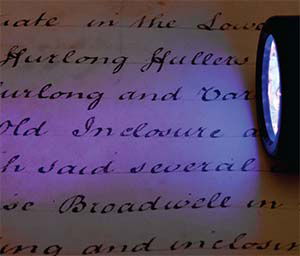 uate in the Lowe
Hurlong Hullers
Hurlong and Var
Old Inclosure a
h said several
se Broadwell in
ing and inclosin